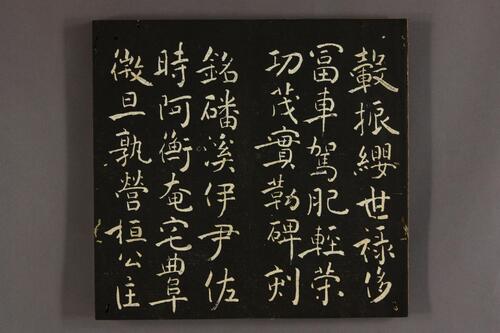 轂振纓世禄侈
冨車駕肥輕榮
功茂實勒碑刻
銘磻溪伊尹佐
時阿衡奄宅曲阜
微旦孰營桓公匡